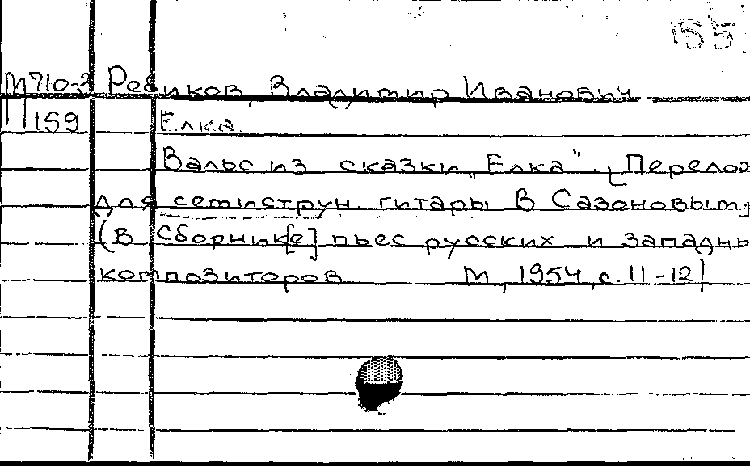 155
М710-3 Ребиков, Владимир Иванович
П159 Елка.
Вальс из сказки „Елка". [Перелож
для семиструн. гитары В Сазоновым,
(В Сборник[е] пьес русских и западны
композиторов М, 1954, с. 11-12)